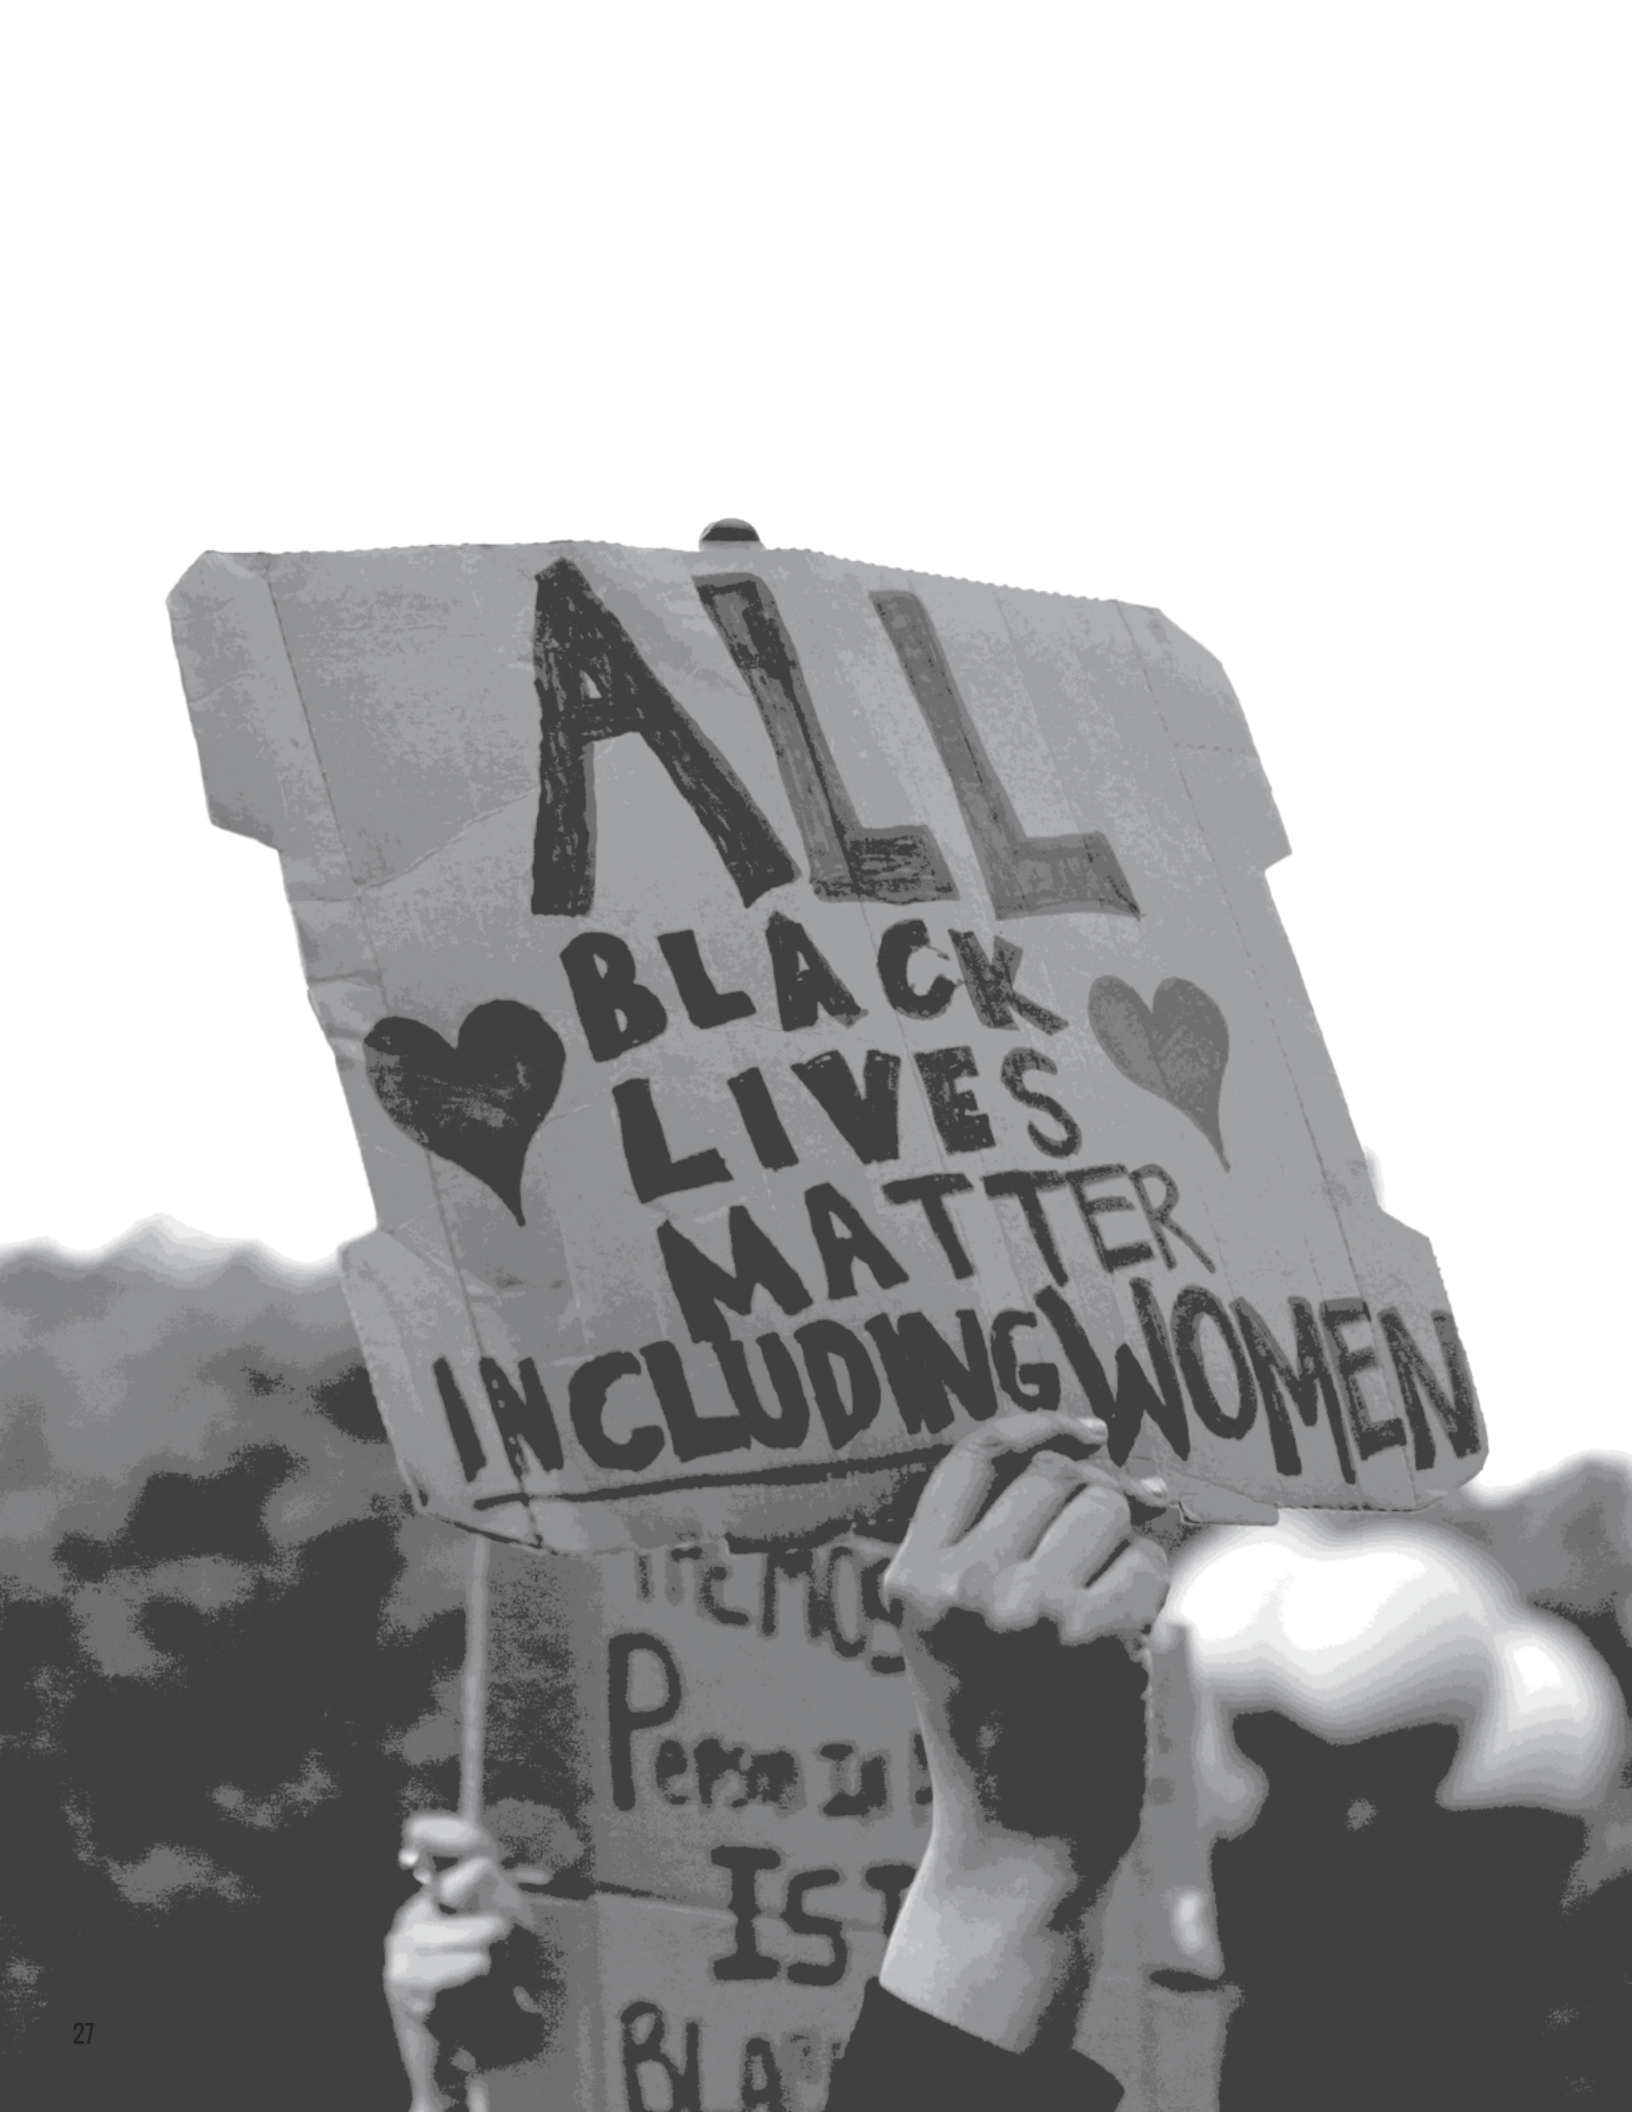 ALL
BLACK
LIVES
MATTER
INCLUDING WOMEN
THE MOS
Person In
IS
BLA
27